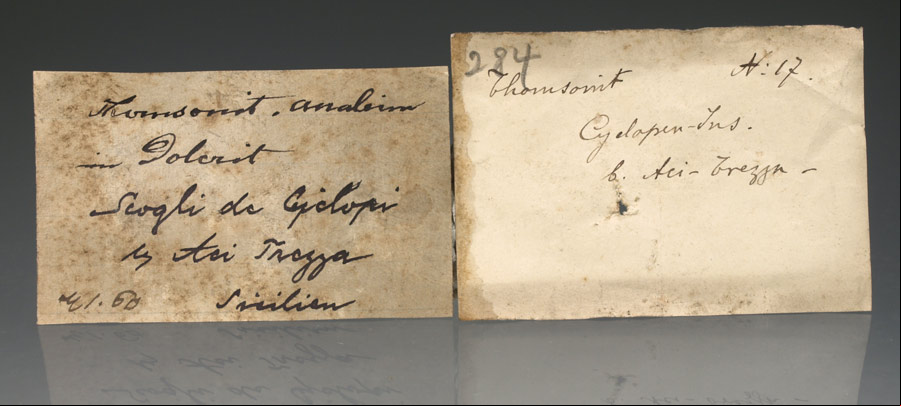 Thomsonit. Analcim
in Dolerit
Scogli de Cyclopi
by Aci Trezza
Sicilien
284
Thomsonit N: 17.
Cyclopen-Ins.
b. Aci-Trezza -